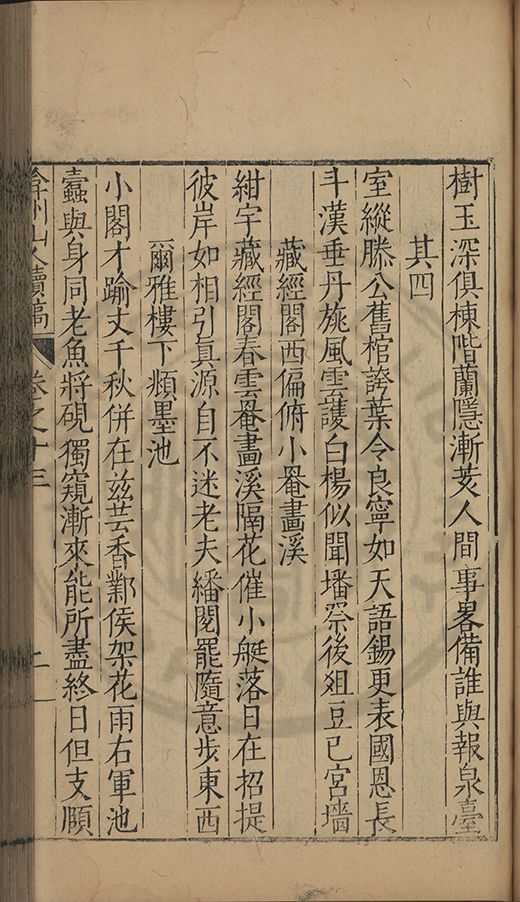 樹玉深俱棟階蘭隱漸荄人間事畧備誰與報泉臺
其四
室縱滕公舊棺誇葉令良寧如天語錫更表國恩長
斗漢垂丹旐風雲護白楊似聞墦祭後爼豆已宮墻
藏經閣西偏俯小罨畫溪
紺宇藏經閣春雲罨畫溪隔花催小艇落日在招提
彼岸如相引眞源自不迷老夫繙閱罷隨意步東西
爾雅樓下頫墨池
小閣才踰丈千秋併在兹芸香鄴侯架花雨右軍池
蠹與身同老魚將硯獨窺漸來能所盡終日但支頤
弇州山人續稿 卷之十三